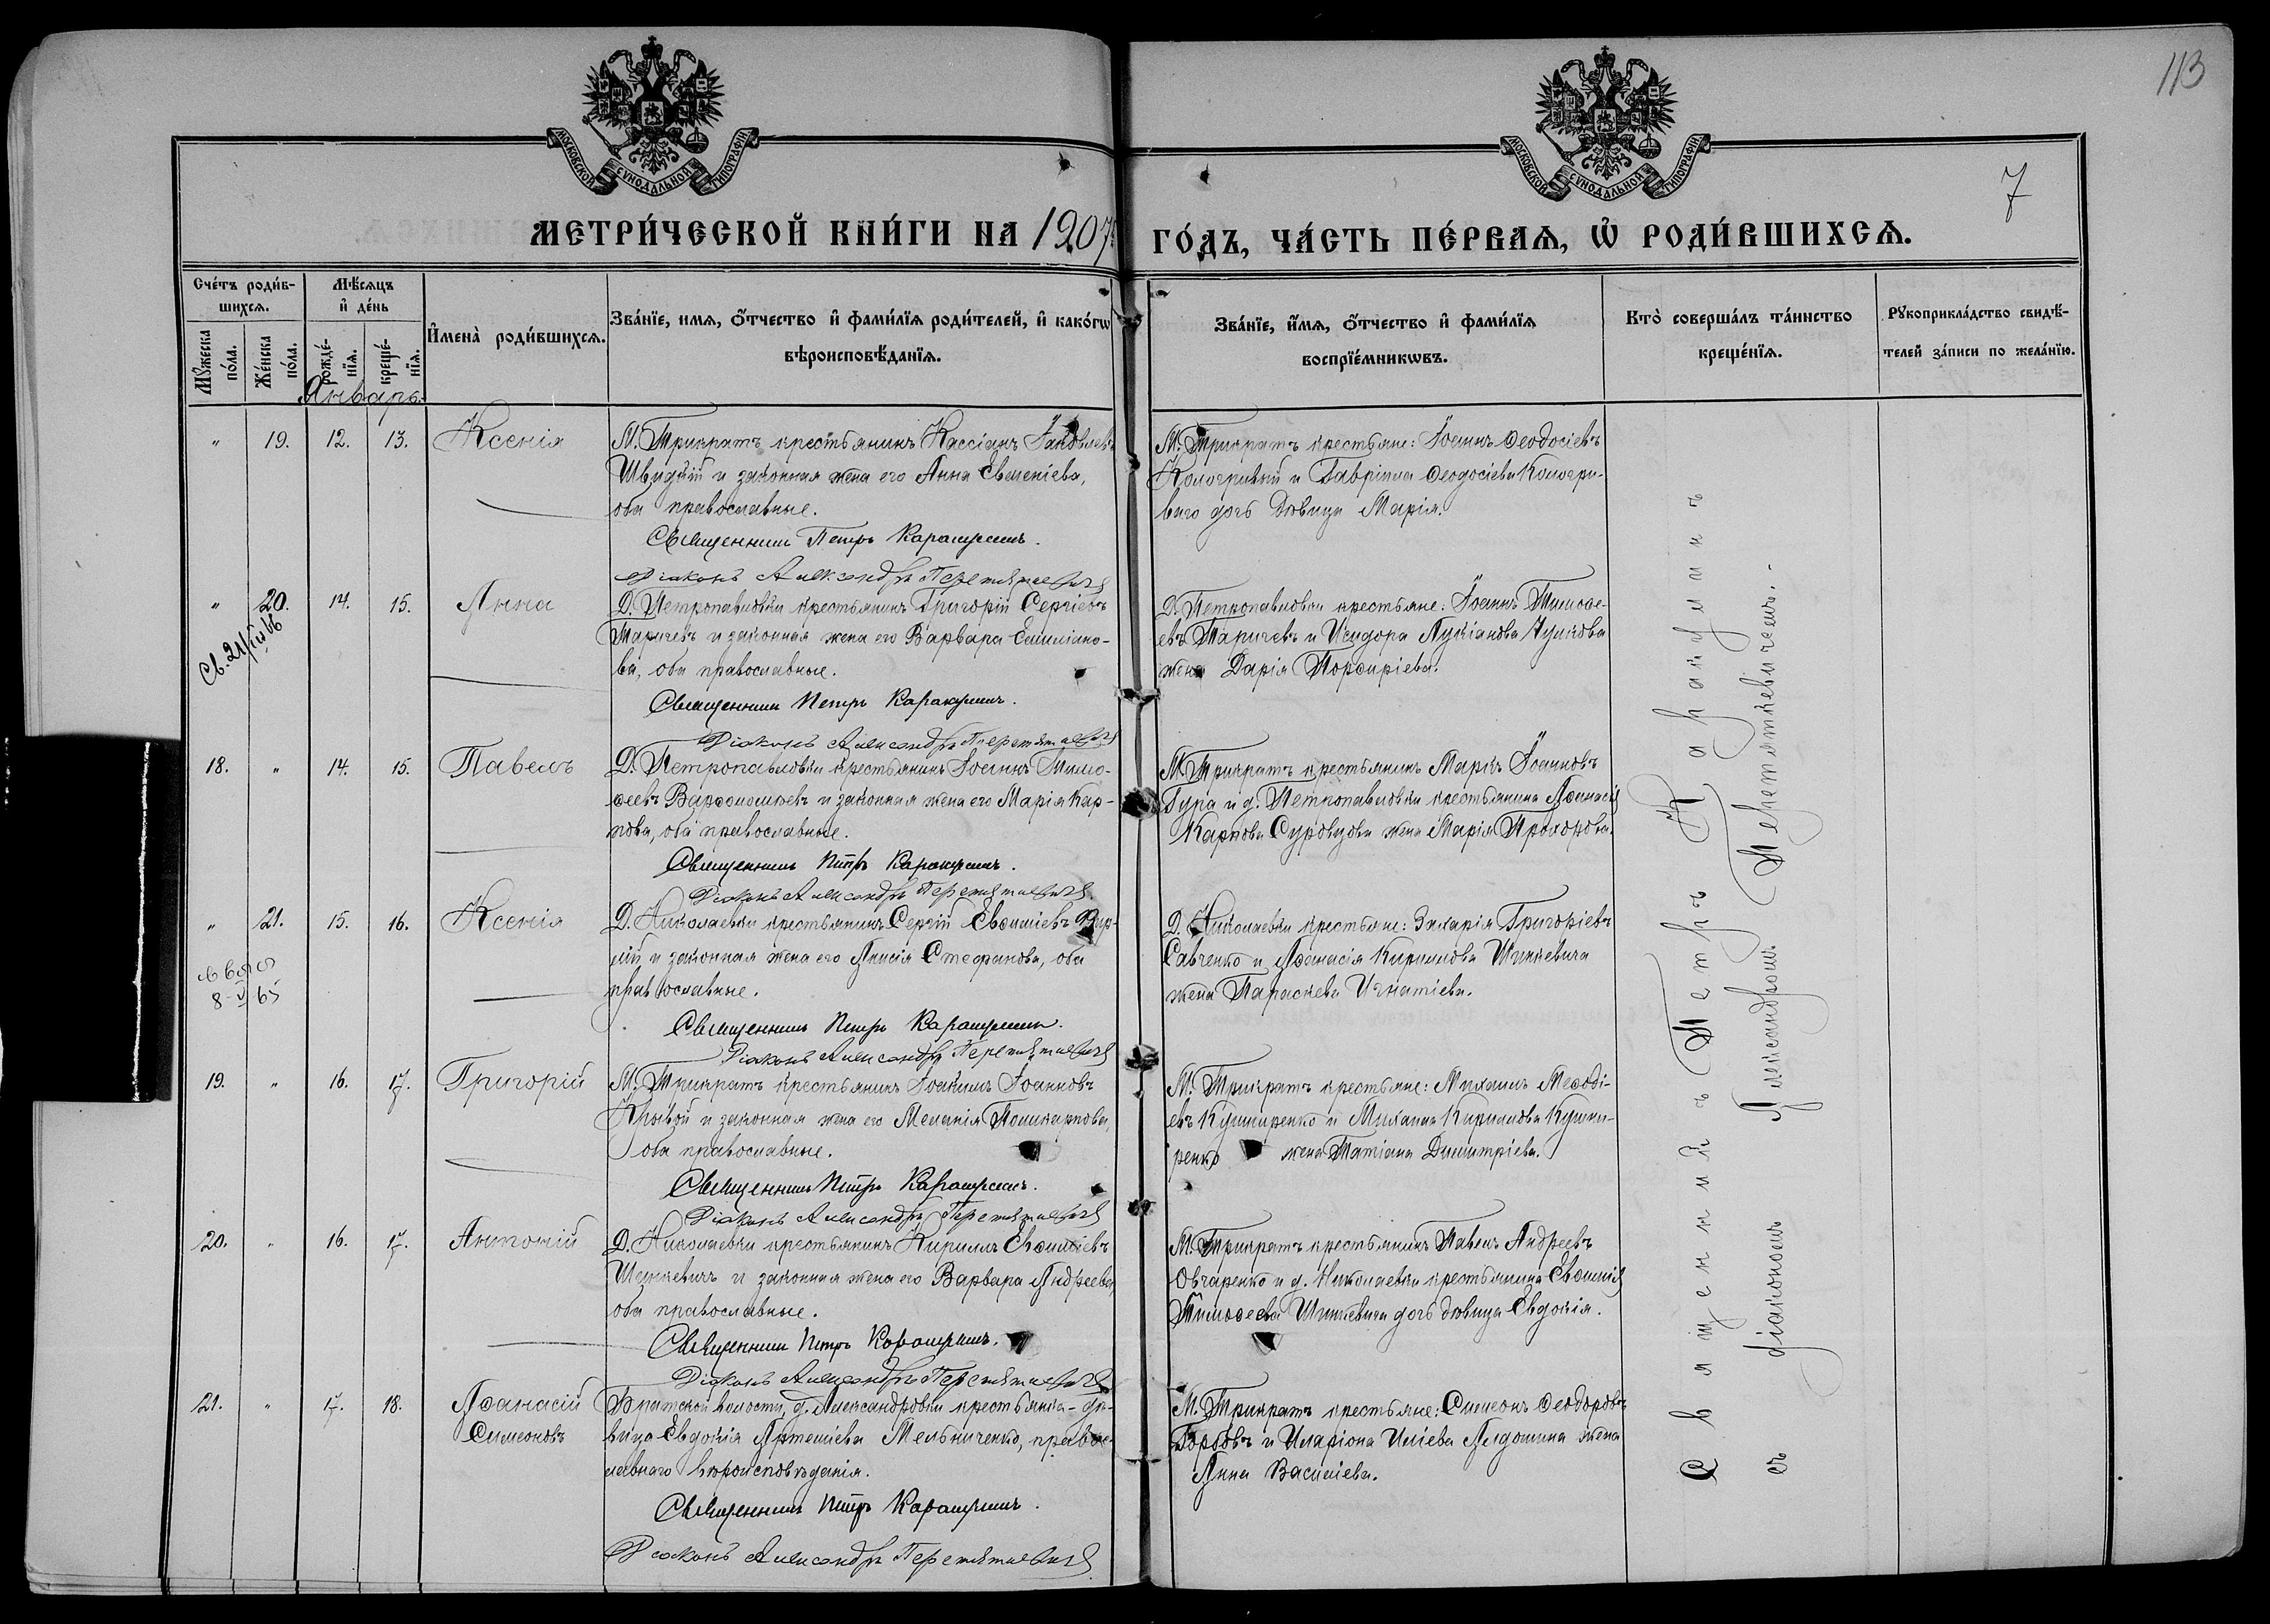 113
7
МОСКОВСКОЙ СѴНОДАЛЬНОЙ ТИПОГРАФІИ
МОСКОВСКОЙ СѴНОДАЛЬНОЙ ТИПОГРАФІИ
МЕТРИ́ЧЕСКОЙ КНИ́ГИ НА 1907 ГО́ДЪ, ЧА́СТЬ ПЕ́РВАѦ, Ѡ҆ РОДИ́ВШИХСѦ.
Сче́тъ роди́в-
шихсѧ.
Мꙋ́жеска по́ла.
Же́нска по́ла.
Мѣ́сѧцъ
и҆ де́нь
рожде́-
нїѧ.
креще́-
нїѧ.
И҆мена̀ роди́вшихсѧ.
Зва́нїе, имѧ, ѻ҆́тчество и҆ фами́лїѧ роди́телей, и҆ како́гѡ
вѣроисповѣ́данїѧ.
Зва́нїе, и҆́мѧ, ѻ҆́тчество и҆ фами́лїѧ
воспрїе́мникѡвъ.
Кто̀ соверша́лъ та́инство
креще́нїѧ.
Рꙋкоприкла́дство свидѣ́-
телей за́писи по жела́нїю.
Январь.
" 19. 12. 13. Ксенія
М. Трикратъ крестьянинъ Кассіанъ Іаковлевъ
Швидкій и законная жена его Анна Евменіева,
оба православные.
Священникъ Петръ
Діаконъ Александръ Перетятковичъ
М. Трикратъ крестьяне: Іоаннъ Ѳеодосіевъ
Кологривый и Гавріила Ѳеодосіева Кологри-
ваго дочь дѣвица Марія.
" 20. 14. 15. Анна
Св. 21/
Д. Петропавловки крестьянинъ Григорій Сергіевъ
Таричевъ и законная жена его Варвара Емиліано-
ва, оба православные.
Священникъ Петръ
Діаконъ Александръ Перетятковичъ
Д. Петропавловки крестьяне: Іоаннъ Тимоѳе-
евъ Таричевъ и Исидора Лукіанова
жена Дарія Порфиріева.
18. " 14. 15. Павелъ
Д. Петропавловки крестьянинъ Іоаннъ Тимо-
ѳеевъ Варѳоломѣевъ и законная жена его Марія Кар-
пова, оба православные.
Священникъ Петръ
Діаконъ Александръ Перетятковичъ
М. Трикратъ крестьянинъ Маркъ Іоанновъ
Гура и д. Петропавловки крестьянина Аѳанасія
Карпова Суровцова жена Марія Прохорова.
" 21. 15. 16. Ксенія
8 V 65
Д. Николаевки крестьянинъ Сергій Евѳиміевъ
и законная жена его Анисія Стефанова, оба
православные.
Священникъ Петръ
Діаконъ Александръ Перетятковичъ
Д. Николаевки крестьяне: Захарія Григоріевъ
Савченко и Аѳанасія Кириллова Шинкевича
жена Параскева Игнатіева.
19. " 16. 17. Григорій
М. Трикратъ крестьянинъ Іоакимъ Іоанновъ
Крывой и законная жена его Меланія Поликарпова,
оба православные.
Священникъ Петръ
Діаконъ Александръ Перетятковичъ
М. Трикратъ крестьяне: Михаилъ Меѳоді-
евъ Кушниренко и Михаила Кириллова Кушни-
ренко жена Татіана Димитріева.
20. " 16. 17. Антоній
Д. Николаевки крестьянинъ Кириллъ Евѳиміевъ
Шинкевичъ и законная жена его Варвара Андреева,
оба православные.
Священникъ Петръ
Діаконъ Александръ Перетятковичъ
М. Трикратъ крестьянинъ Павелъ Андреевъ
Овчаренко и д. Николаевки крестьянина Евѳимія
Тимоѳеева Шинкевича дочь дѣвица Евдокія.
21. " 17. 18. Аѳанасій
Симеоновъ
Братской волости, д. Александровки крестьянка-дѣ-
вица Евдокія Артеміева Мельниченко, правос-
лавнаго вѣроисповѣданія.
Священникъ Петръ
Діаконъ Александръ Перетятковичъ
М. Трикратъ крестьяне: Симеонъ Ѳеодоровъ
Горбовъ и Иларіона Иліева Алдошина жена
Анна Василіева.
Священникъ Петръ
съ діакономъ Александромъ Перетятковичемъ.